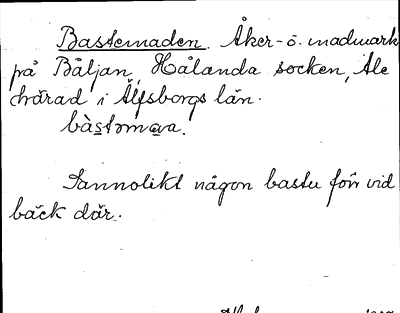 Bastemaden. Åker- o. madmark
på Båljan, Hålanda socken, Ale
härad i Älfsborgs län.
bàstəmava.
Sannolikt någon bastu förr vid
bäck där.